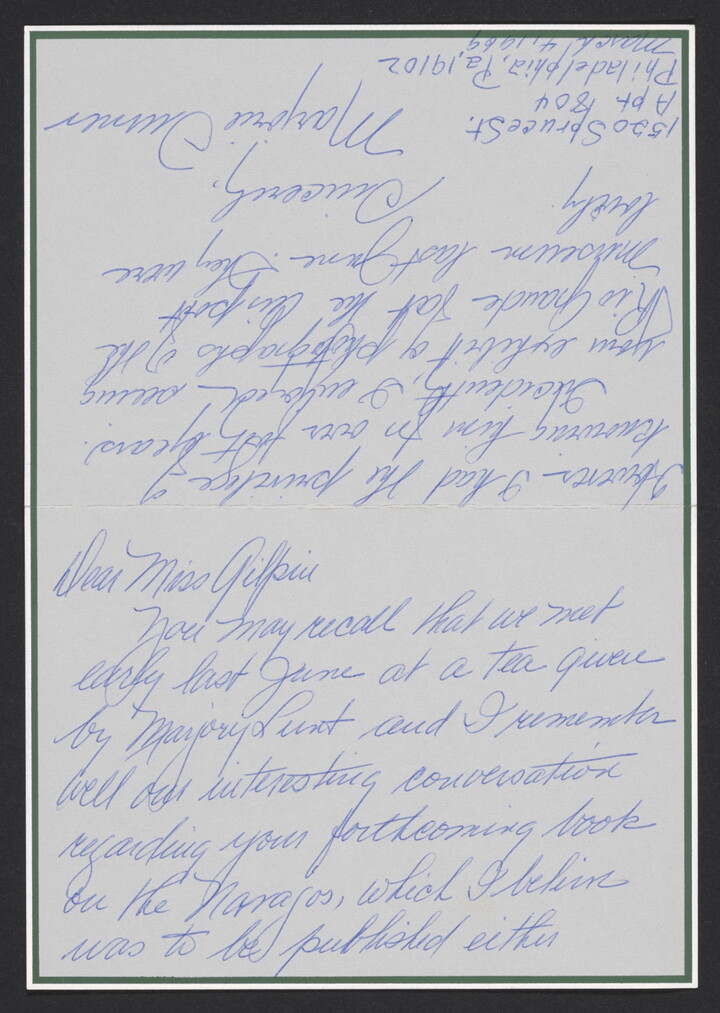 Dear Miss Gilpin
You may recall that we met
early last June at a tea given
by Marjory Lunt and I remember
well our interesting conversation
regarding your forthcoming book
on the Navajos, which I believe
was to be published either
However I had the privilege of
knowing him for over years.
Incidently, I enjoyed seeing
your exhibit of photographs of the
Rio Grande at the Airport
Museum last June. They were
lovely.
Sincerely,
Marjorie Turner
1520 Spruce St.
Apt. 1804
Philadelphia, Pa. 19102
March 4, 1969